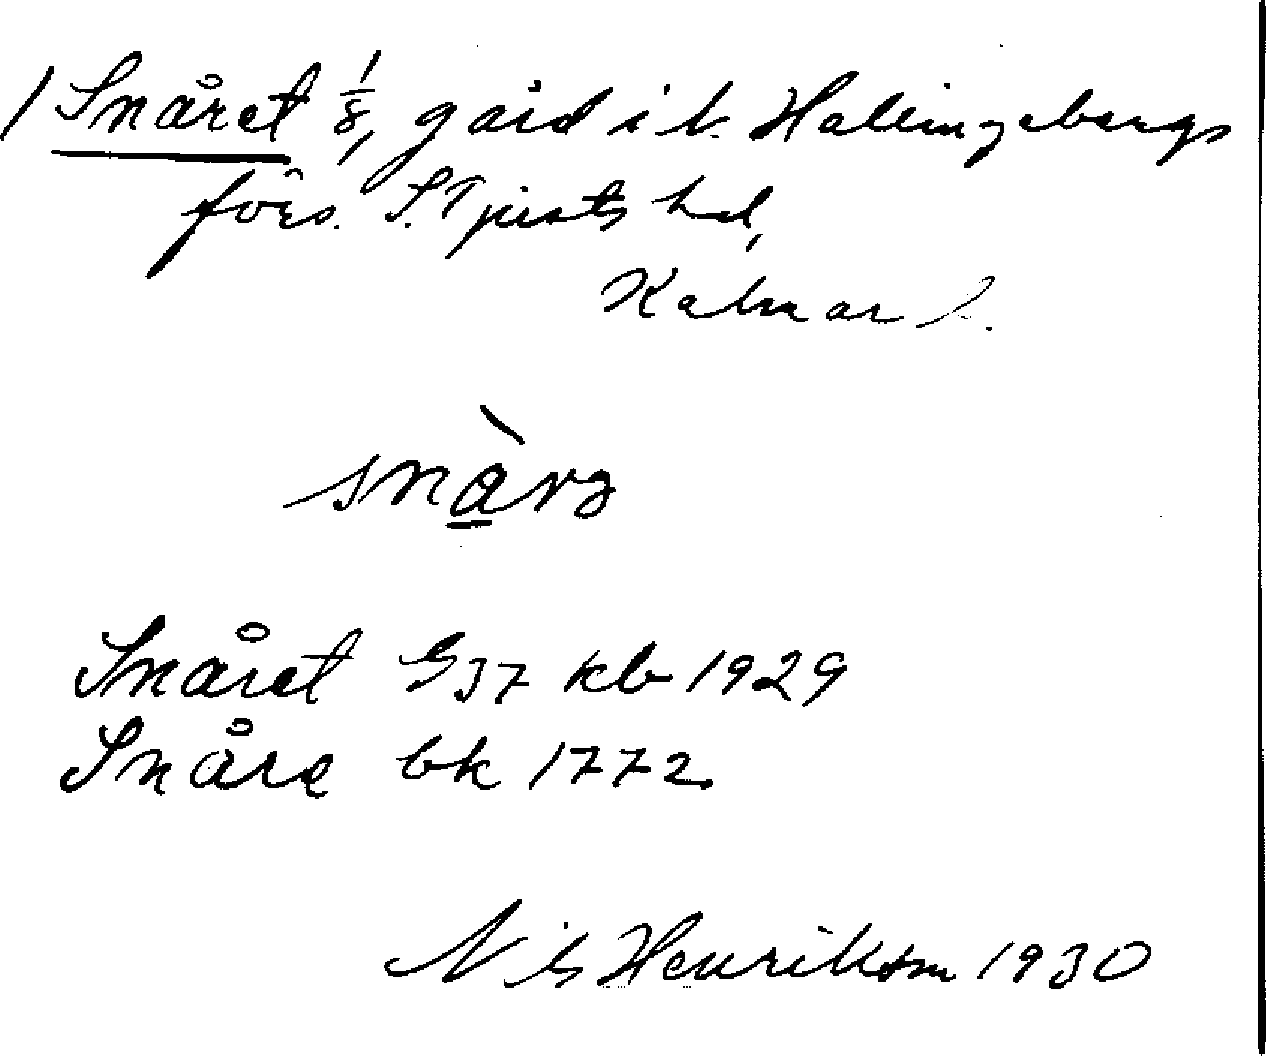 / Snåret 1/8, gård i v. Hallingebergs
förs. S. Tjusts hd,
Kalmar l.
snàrə
Snåret G37 kb 1929
Snåre bk 1772
Nils Henrikson 1930